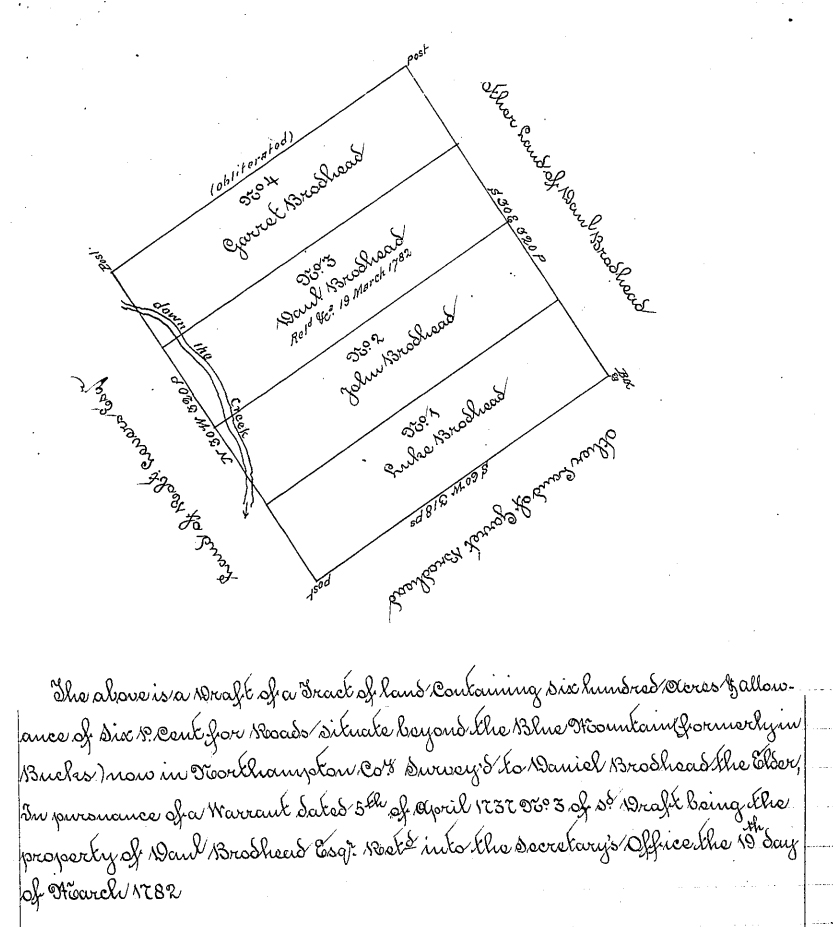 Post
(obliterated)
No. 4
Garret Brodhead
Other Land of Danl Brodhead
S 30 E 320 P
Post
No. 3
Danl Brodhead
Retd &c. 19 March 1782
down the Creek
No. 2
John Brodhead
N 30 W 320 P
Land of Robt Levers Esqr
No. 1
Luke Brodhead
S 60 W 318 ps
Other Land of Garret Brodhead
Post
The above is a Draft of a Tract of land Containing six hundred Acres & allow-
ance of Six P. Cent for Roads situate beyond the Blue Mountain (formerly in
Bucks) now in Northampton Coy Survey'd to Daniel Brodhead the Elder,
In pursuance of a Warrant dated 5th of April 1737 No. 3 of sd Draft being the
property of Danl Brodhead Esqr. Retd into the Secretary's Office the 19th day
of March 1782